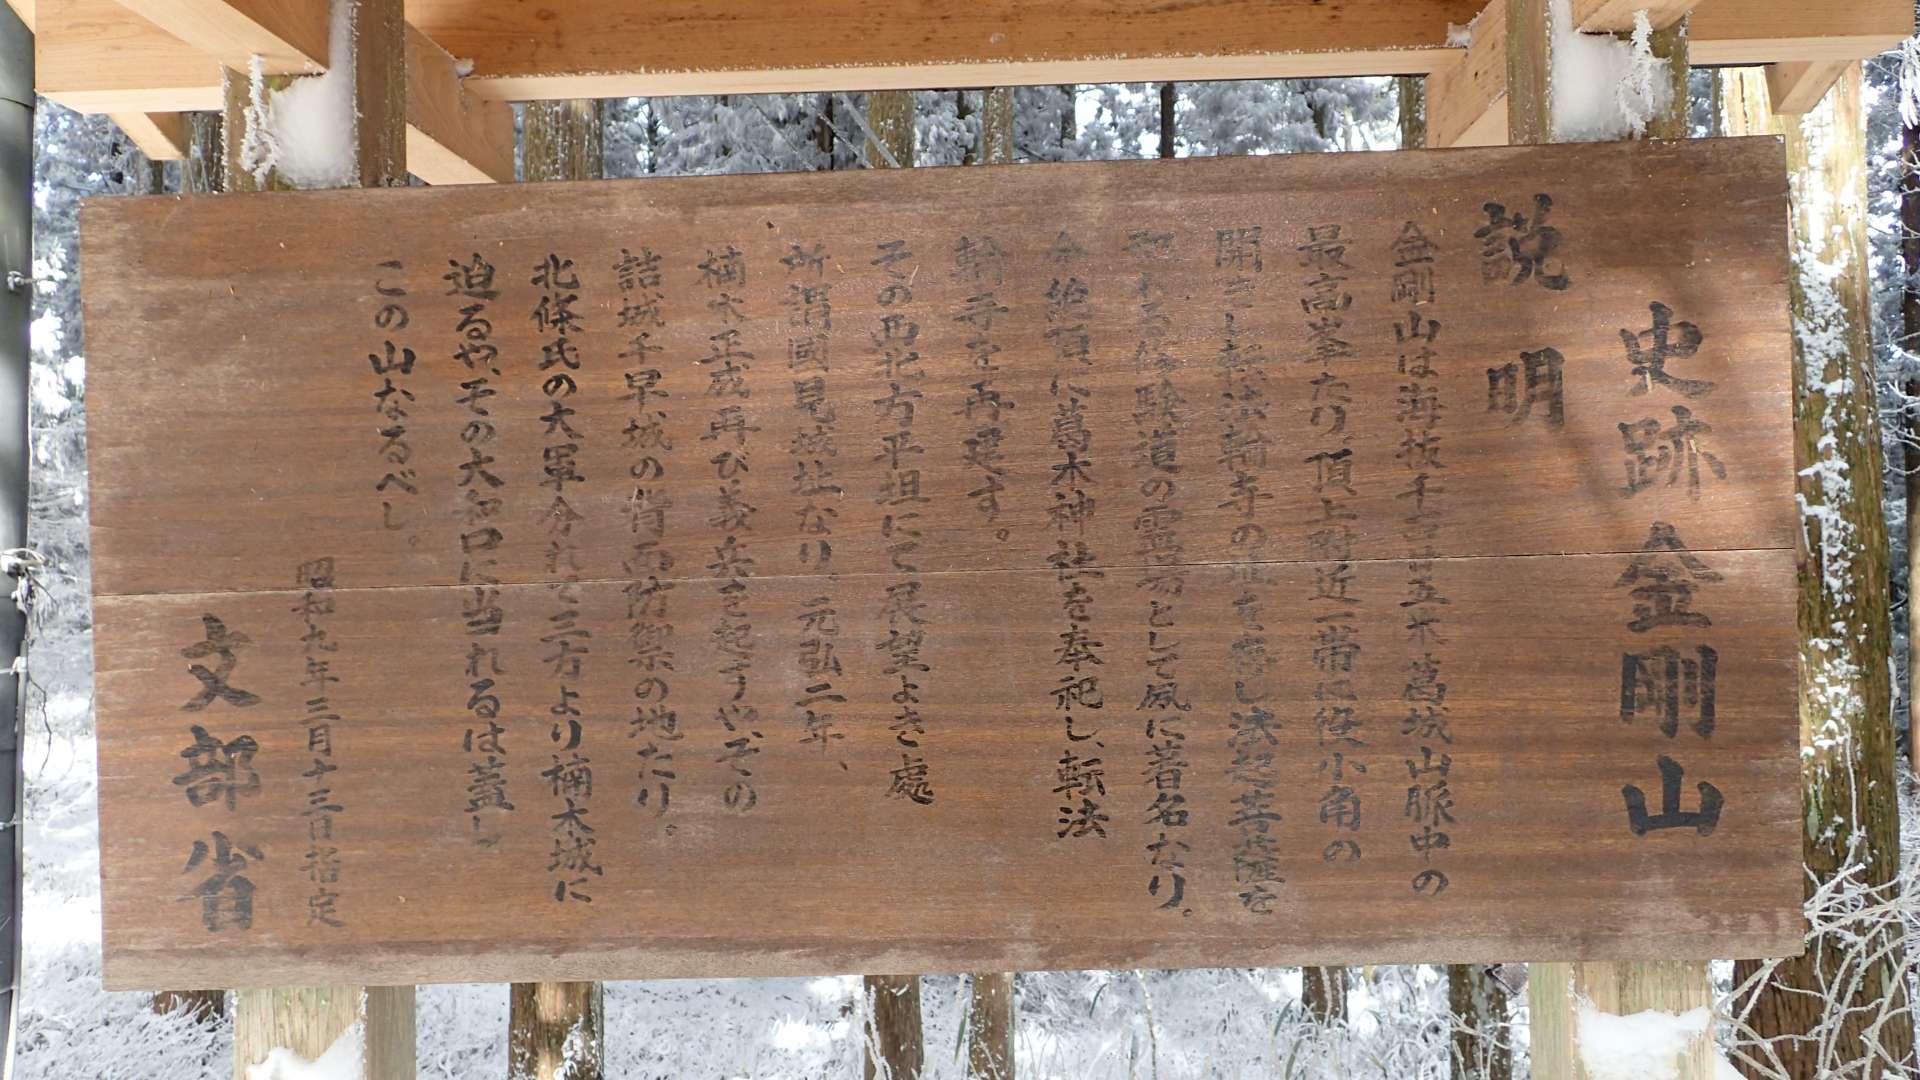 史跡金剛山
説明
金剛山は海抜千百廿五米葛城山脈中の
最高峯たり、頂上附近一帯に役小角の
開きし転法輪寺の地を存し法起菩薩を
祀れる修験道の霊場として夙に著名なり。
今絶頂に葛木神社を奉祀し、転法
輪寺を再建す。
その西北方平坦にて展望よき處
所謂國見城址なり。元弘二年、
楠木正成再び義兵を起すや、その
詰城千早城の背面防禦の地たり。
北條氏の大軍分れて三方より楠木城に
迫るや、その大和口に当れるは蓋し
この山なるべし。
昭和九年三月十三日指定
文部省